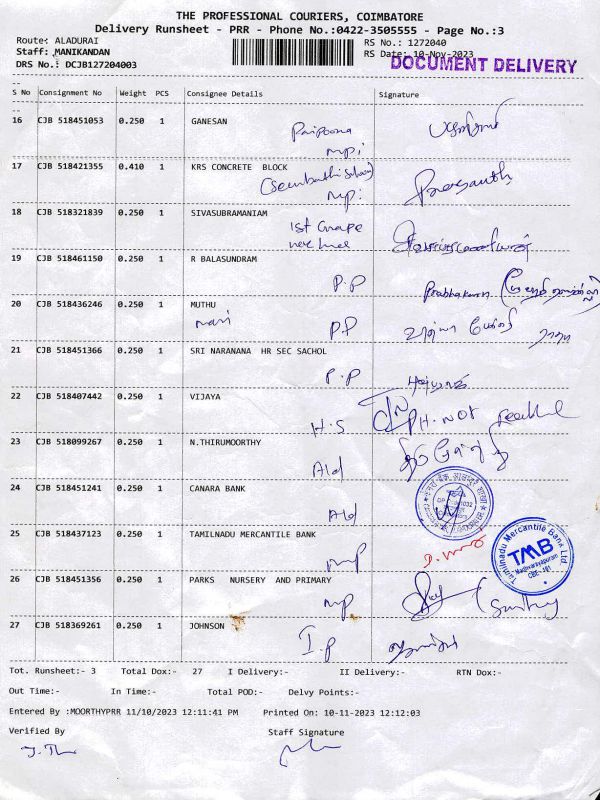 THE PROFESSIONAL COURIERS, COIMBATORE
Delivery Runsheet - PRR - Phone No.:0422-3505555 - Page No.:3
Route: ALADURAI
RS No.: 1272040
Staff: MANIKANDAN
RS Date: 10-Nov-2023
DRS No.: DCJB127204003
DOCUMENT DELIVERY
S No Consignment No Weight PCS Consignee Details Signature
16 CJB 518451053 0.250 1 GANESAN
17 CJB 518421355 0.410 1 KRS CONCRETE BLOCK
Prasanth
18 CJB 518321839 0.250 1 SIVASUBRAMANIAM
1st
19 CJB 518461150 0.250 1 R BALASUNDRAM
P.P Prabhakaran
20 CJB 518436246 0.250 1 MUTHU
mari P.P
21 CJB 518451366 0.250 1 SRI NARANANA HR SEC SACHOL
P.P
22 CJB 518407442 0.250 1 VIJAYA
H.S PH.NOT
23 CJB 518099267 0.250 1 N.THIRUMOORTHY
Ald
24 CJB 518451241 0.250 1 CANARA BANK
Ald
25 CJB 518437123 0.250 1 TAMILNADU MERCANTILE BANK
mp
Tamilnadu Mercantile Bank Ltd.
TMB
26 CJB 518451356 0.250 1 PARKS NURSERY AND PRIMARY
mp
27 CJB 518369261 0.250 1 JOHNSON
I.P
Tot. Runsheet:- 3 Total Dox:- 27 I Delivery:- II Delivery:- RTN Dox:-
Out Time:- In Time:- Total POD:- Delvy Points:-
Entered By :MOORTHYPRR 11/10/2023 12:11:41 PM Printed On: 10-11-2023 12:12:03
Verified By Staff Signature